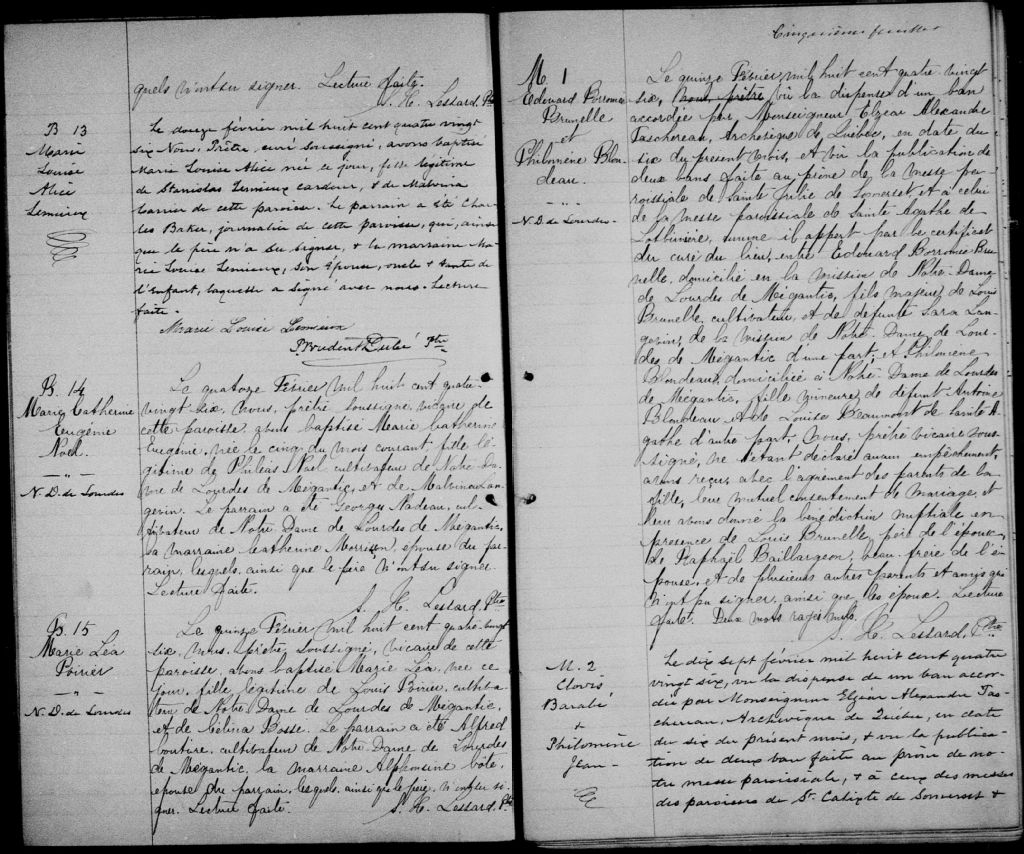 quels n'ont su signer. Lecture faite.
S. H. Lessard, Ptre
B 13
Marie
Louise
Alice
Lemieux
Le douze février mil huit cent quatre vingt
six Nous, Prêtre, curé soussigné, avons baptisé
Marie Louise Alice née ce jour, fille légitime
de Stanislas Lemieux cardeur, & de Malvina
Carrier de cette paroisse. Le parrain a été Char-
les Baker, journalier de cette paroisse, qui, ainsi
que le père n'a su signer, & la marraine Ma-
rie Louise Lemieux, son épouse, oncle & tante de
l'enfant, laquelle a signé avec nous. Lecture
faite.
Marie Louise Lemieux
Prudent Dubé Ptre
B. 14
Marie Catherine
Eugénie
Noël.
N. D. de Lourdes
Le quatorze Février mil huit cent quatre-
vingt-six, nous, prêtre soussigné, vicaire de
cette paroisse, avons baptisé Marie Catherine
Eugénie, née le cinq du mois courant, fille lé-
gitime de Philéas Noël cultivateur de Notre Da-
me de Lourdes de Mégantic, et de Malvina Lan-
gevin. Le parrain a été Georges Nadeau, cul-
tivateur de Notre Dame de Lourdes de Mégantic,
la marraine Catherine Morrisson, épouse du par-
rain, lesquels, ainsi que le père n'ont su signer.
Lecture faite.
S. H. Lessard, Ptre
B. 15
Marie Léa
Poirier
N. D. de Lourdes
Le quinze Février mil huit cent quatre-vingt
six, nous, prêtre soussigné, vicaire de cette
paroisse, avons baptisé Marie Léa, née ce
jour, fille légitime de Louis Poirier, cultiva-
teur de Notre Dame de Lourdes de Mégantic,
et de Célina Bosse. Le parrain a été Alfred
Couture, cultivateur de Notre-Dame de Lourdes
de Mégantic, la marraine Alphonsine Côté,
épouse du parrain, lesquels, ainsi que le père, n'ont su si-
gner. Lecture faite.
S. H. Lessard, Ptre
Cinquième feuillet
M. 1
Edouard Borromée
Brunelle
et
Philomène Blon-
deau.
N. D. de Lourdes
Le quinze Février, mil huit cent quatre-vingt
six, nous, prêtre vu la dispense d'un ban
accordée par Monseigneur Elzéar Alexandre
Taschereau, Archevêque de Québec, en date du
six du présent mois, et vu la publication de
deux bans faite au prône de la messe pa-
roissiale de Sainte Julie de Somerset, et à celui
de la messe paroissiale de Sainte Agathe de
Lotbinière, comme il appert par le certificat
du curé du lieu, entre Edouard Borromée Bru-
nelle, domicilié en la mission de Notre-Dame
de Lourdes de Mégantic, fils majeur de Louis
Brunelle, cultivateur, et de défunte Sara Lan-
gevin, de la mission de Notre Dame de Lour-
des de Mégantic d'une part; et Philomène
Blondeau, domiciliée à Notre-Dame de Lourdes
de Mégantic, fille mineure de défunt Antoine
Blondeau et de Louise Beaumont de Sainte A-
gathe d'autre part, nous, prêtre vicaire sous-
signé, ne s'étant déclaré aucun empêchement,
avons reçu, avec l'agrément des parents de la
fille, leur mutuel consentement de mariage, et
leur avons donné la bénédiction nuptiale en
présence de Louis Brunelle, père de l'époux,
de Raphaël Baillargeon, beau-frère de l'é-
pouse, et de plusieurs autres parents et amis qui
n'ont pu signer, ainsi que les époux. Lecture
faite. Deux mots rayés nuls.
S. H. Lessard, Ptre
M. 2
Clovis
Barabé
&
Philomène
Jean
Le dix sept février mil huit cent quatre
vingt six, vu la dispense de un ban accor-
dée par Monseigneur Elzéar Alexandre Tas-
chereau, Archevêque de Québec, en date
du six du présent mois, & vu la publica-
tion de deux ban faite au prône de no-
tre messe paroissiale, & à ceux des messes
des paroisses de St Calixte de Somerset &